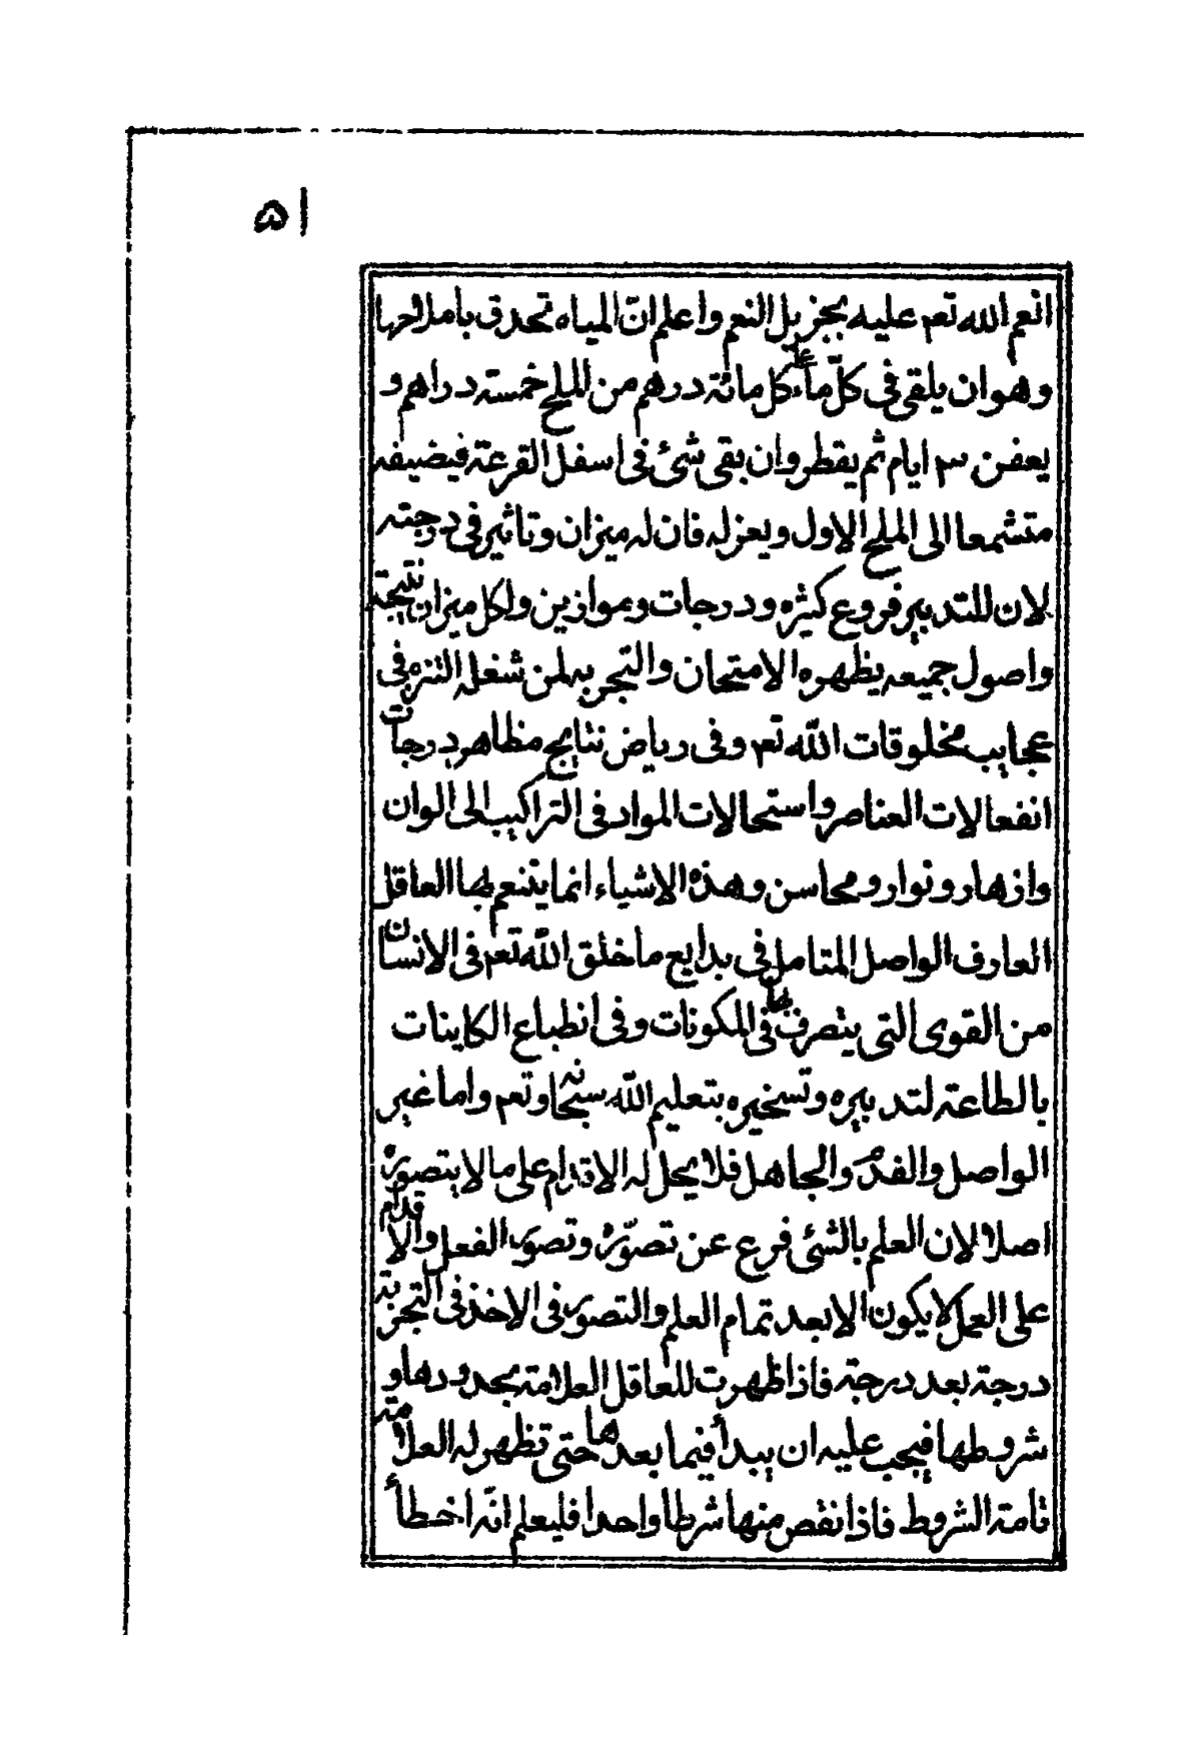 ٥١
انعم الله تعم عليه بجزيل النعم واعلم انّ المياه تحدق باملاحها
وهو ان يلقى فى كلّ ماء على كل مائة درهم من الملح خمسته دراهم و
يعفن ٣ ايام ثم يقطر وان بقى شئ فى اسفل القرعة فيضيفه
متشمعا الى الملح الاول ويعزله فان له ميزان وتاثير فى درجته
لان للتدبير فروع كثيره ودرجات وموازين ولكل ميزان نتيجة
واصول جميعه يظهره الامتحان والتجربه لمن شغله التنزه فى
عجايب مخلوقات الله تعم وفى رياض نتايج مظاهر درجات
انفعالات العناصر واستحالات المواد فى التراكيب الى الوان
وازهار ونوار ومحاسن وهذه الاشياء انما يتنعم بها العاقل
العارف الواصل المتامل فى بدايع ما خلق الله تعم فى الانسان
من القوى التى يتصرف بها فى المكونات وفى انطباع الكاينات
بالطاعة لتدبيره وتسخيره بتعليم الله سبحانه وتعم واما غير
الواصل والفدم والجاهل فلا يحل له الاقدام على ما لا يتصوره
اصلا لان العلم بالشئ فرع عن تصوّره وتصور الفعل والاقدام
على العمل لا يكون الا بعد تمام العلم والتصور فى الاخذ فى التجربة
درجة بعد درجة فاذا ظهرت للعاقل العلامة بحدودها و
شروطها فيجب عليه ان يبدأ فيما بعدها حتى تظهر له العلامة
تامة الشروط فاذا نقص منها شرطا واحدا فليعلم انّه اخطأ